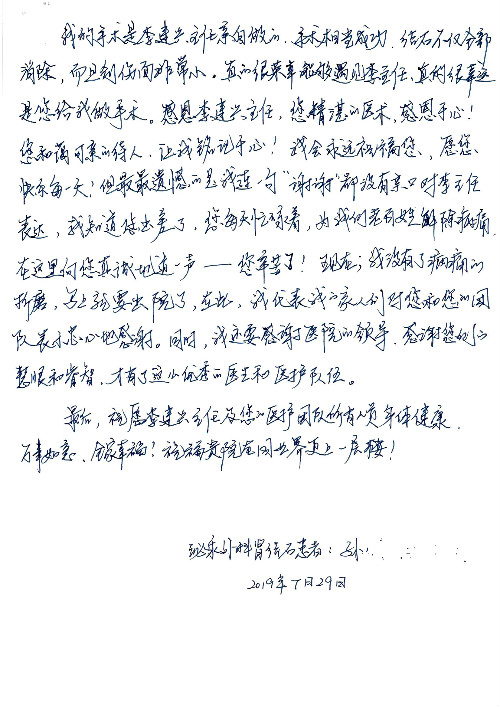 我的手术是李建兴主任亲自做的，手术相当成功，结石不仅全部
消除，而且创伤面非常小。真的很荣幸能够遇见李主任，真的很幸运
是您给我做手术。感恩李建兴主任，您精湛的医术，感恩于心！
您和蔼可亲的待人，让我铭记于心！我会永远祝福您、愿您、
快乐每一天！但最最遗憾的是我连一句“谢谢”都没有亲口对李主任
表达，我知道您出差了，您每天忙碌着，为我们老百姓解除病痛，
在这里向您真诚地道一声——您辛苦了！现在，我没有了病痛的
折磨，马上就要出院了，在此，我代表我的家人们对您和您的团
队表示忠心地感谢。同时，我还要感谢医院的领导，感谢您们的
慧眼和睿智，才有了这么优秀的医生和医护队伍。
最后，祝愿李建兴主任及您的医护团队所有人员身体健康，
万事如意、全家幸福！祝福贵院在同世界更上一层楼！
泌尿外科肾结石患者：孙
2019年7月29日